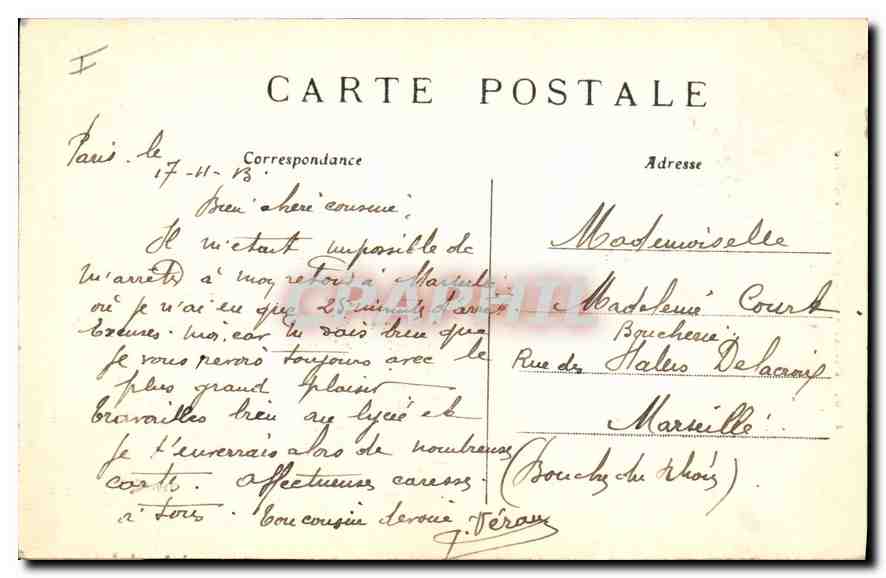 I
CARTE POSTALE
Paris. le
17-11-13.
Correspondance
Bien chère cousine,
Il m'était impossible de
m'arrêter à mon retour à Marseille
où je n'ai eu que 25 minutes d'arrêt
Excuses-moi, car tu sais bien que
je vous revois toujours avec le
plus grand plaisir
travailles bien au lycée et
je t'enverrais alors de nombreuses
carte. Affectueuses caresses.
à tous. Ton cousin dévoué J. Véran
Adresse
Mademoiselle
Madeleine Court
Boucherie
Rue des Halles Delacroix
Marseille
(Bouches du Rhône)